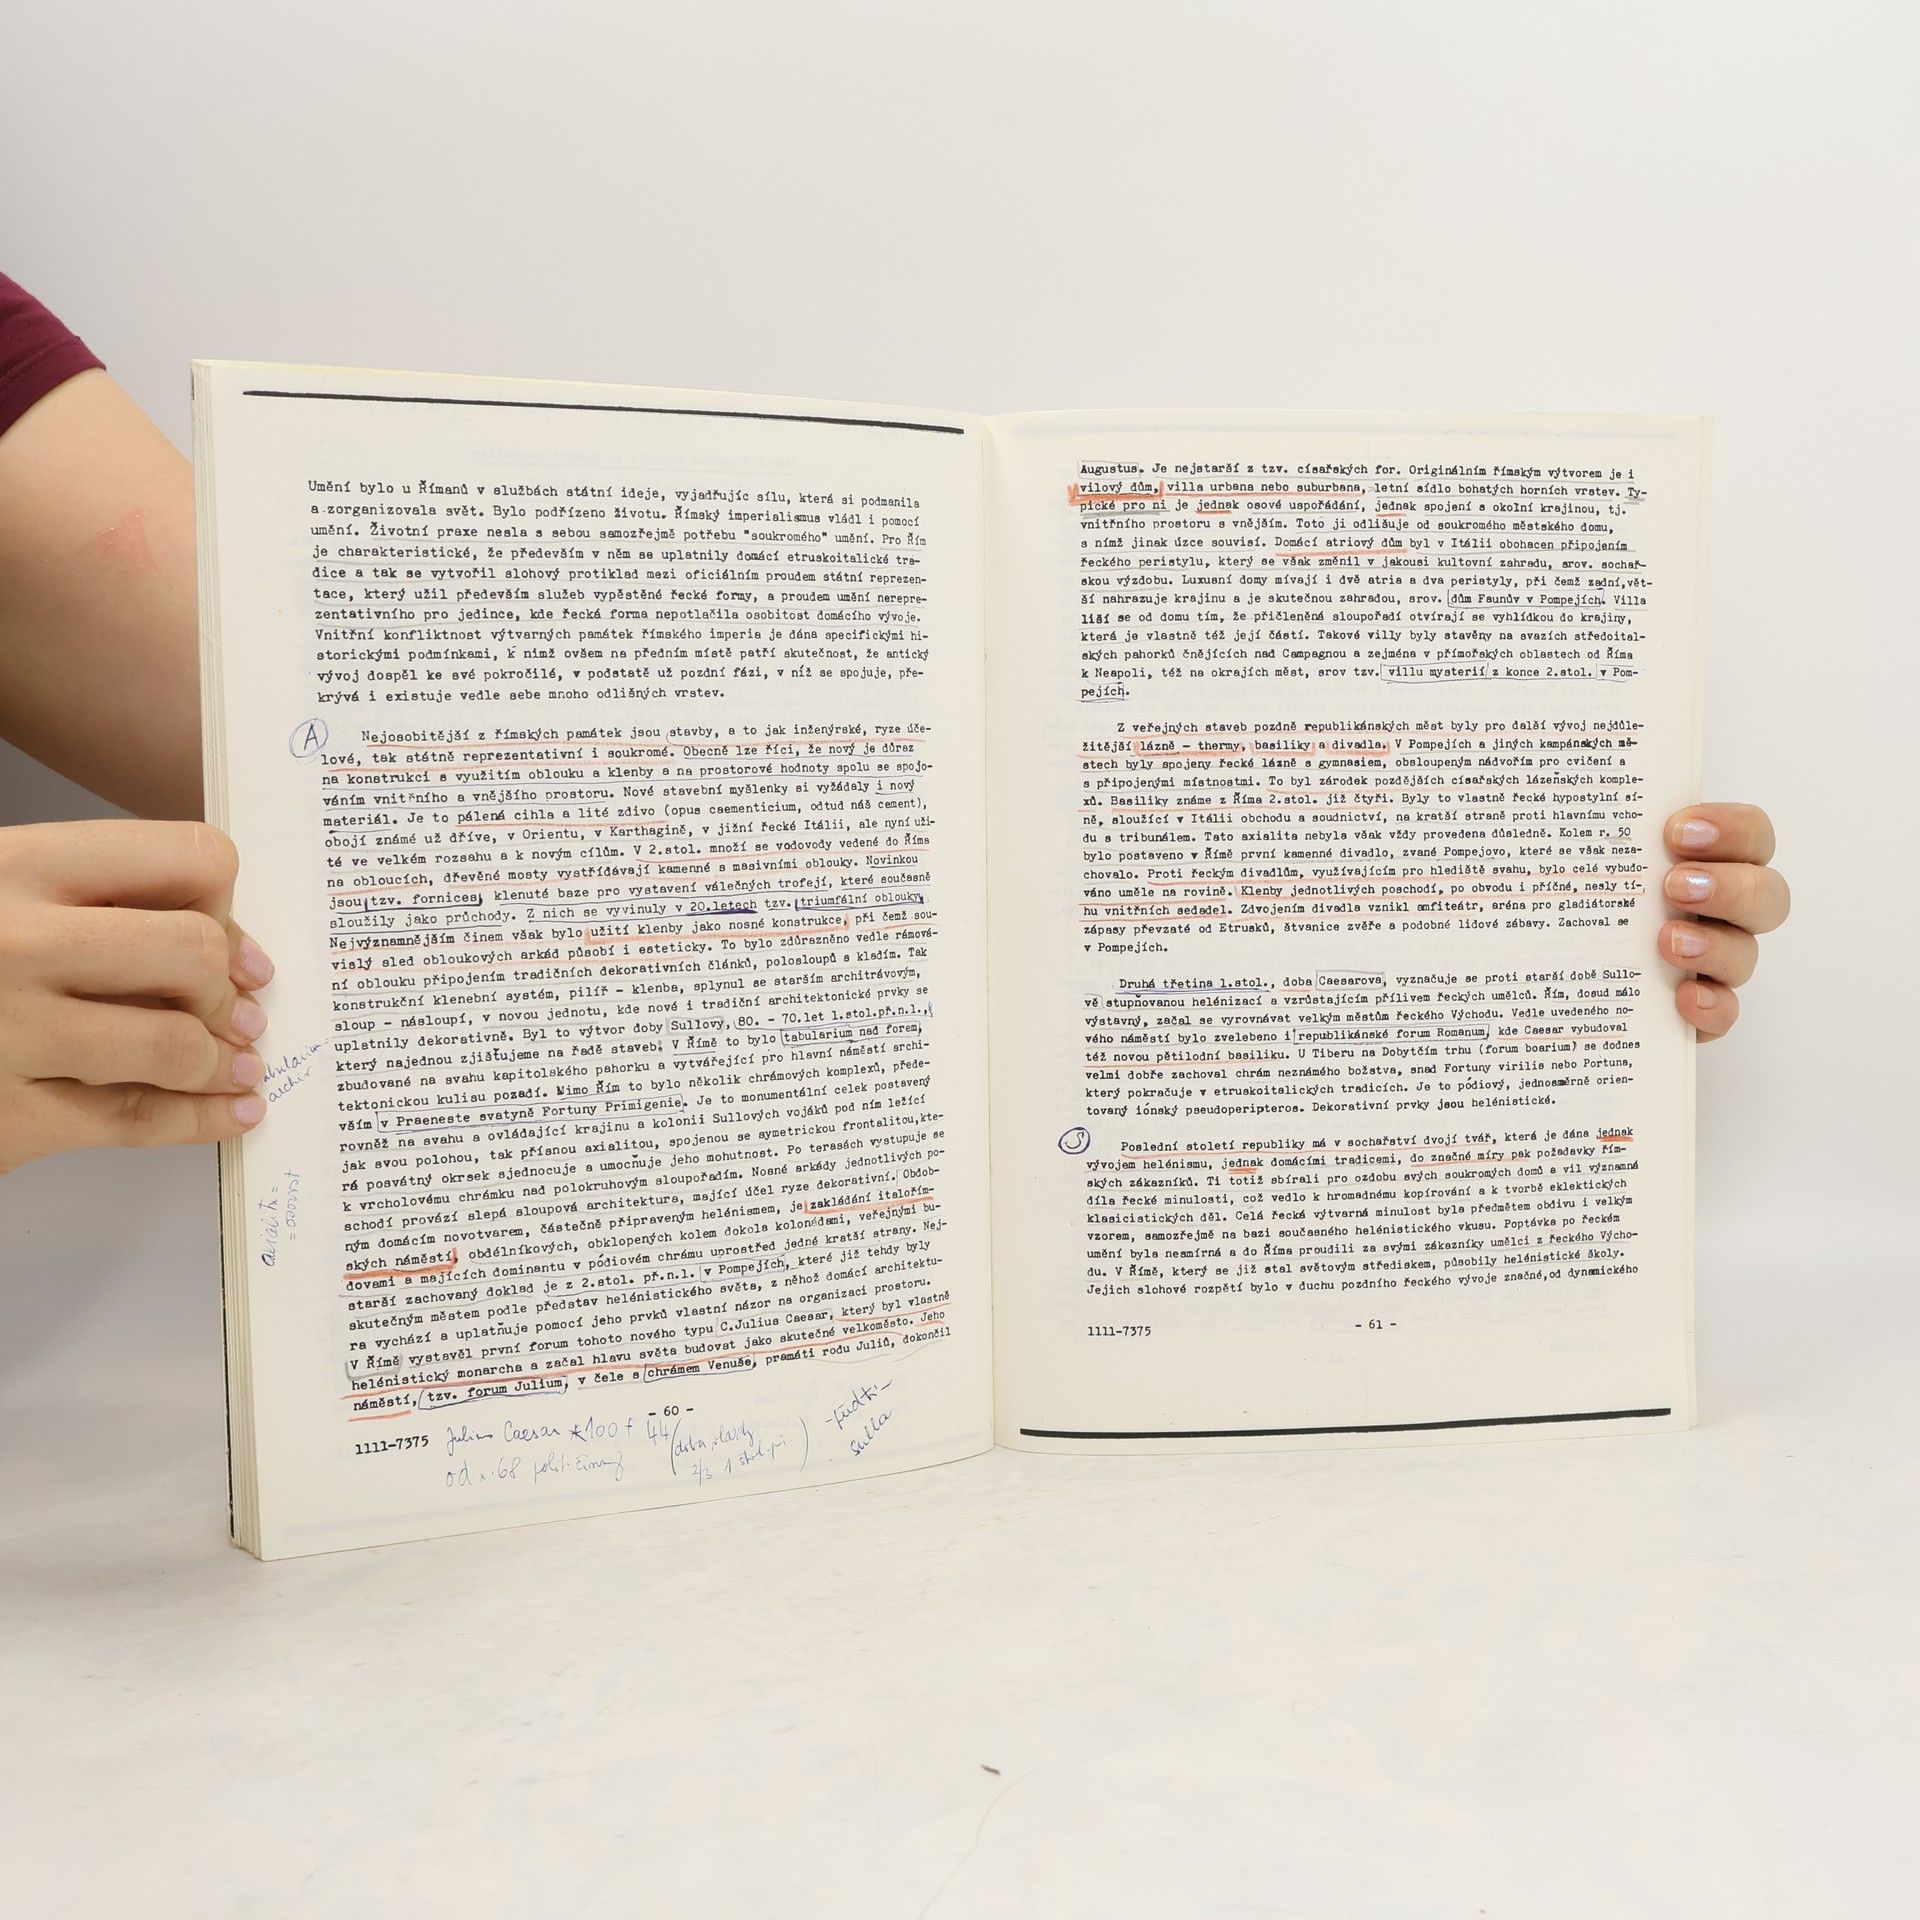 Umění bylo u Římanů v službách státní ideje, vyjadřujíc sílu, která si podmanila
a zorganizovala svět. Bylo podřízeno životu. Římský imperialismus vládl i pomocí
umění. Životní praxe nesla s sebou samozřejmě potřebu "soukromého" umění. Pro Řím
je charakteristické, že především v něm se uplatnily domácí etruskoitalické tra-
dice a tak se vytvořil slohový protiklad mezi oficiálním proudem státní reprezen-
tace, který užil především služeb vypěstěné řecké formy, a proudem umění nerepre-
zentativního pro jedince, kde řecká forma nepotlačila osobitost domácího vývoje.
Vnitřní konfliktnost výtvarných památek římského imperia je dána specifickými hi-
storickými podmínkami, k nimž ovšem na předním místě patří skutečnost, že antický
vývoj dospěl ke své pokročilé, v podstatě už pozdní fázi, v níž se spojuje, pře-
krývá i existuje vedle sebe mnoho odlišných vrstev.
A
Nejosobitější z římských památek jsou stavby, a to jak inženýrské, ryze úče-
lové, tak státně reprezentativní i soukromé. Obecně lze říci, že nový je důraz
na konstrukci s využitím oblouku a klenby a na prostorové hodnoty spolu se spojo-
váním vnitřního a vnějšího prostoru. Nové stavební myšlenky si vyžádaly i nový
materiál. Je to pálená cihla a lité zdivo (opus caementicium, odtud náš cement),
obojí známé už dříve, v Orientu, v Karthagině, v jižní řecké Itálii, ale nyní uži-
té ve velkém rozsahu a k novým cílům. V 2.stol. množí se vodovody vedené do Říma
na obloucích, dřevěné mosty vystřídávají kamenné s masivními oblouky. Novinkou
jsou tzv. fornices, klenuté baze pro vystavení válečných trofejí, které současně
sloužily jako průchody. Z nich se vyvinuly v 20.letech tzv. triumfální oblouky.
Nejvýznamnějším činem však bylo užití klenby jako nosné konstrukce, při čemž sou-
vislý sled obloukových arkád působí i esteticky. To bylo zdůrazněno vedle rámová-
ní oblouku připojením tradičních dekorativních článků, polosloupů s kladím. Tak
konstrukční klenební systém, pilíř - klenba, splynul se starším architrávovým,
sloup - násloupí, v novou jednotu, kde nové i tradiční architektonické prvky se
uplatnily dekorativně. Byl to výtvor doby Sullovy, 80. - 70.let 1.stol.př.n.l.,
který najednou zjišťujeme na řadě staveb. V Římě to bylo tabularium nad forem,
zbudované na svahu kapitolského pahorku a vytvářející pro hlavní náměstí archi-
tektonickou kulisu pozadí. Mimo Řím to bylo několik chrámových komplexů, přede-
vším v Praeneste svatyně Fortuny Primigenie. Je to monumentální celek postavený
rovněž na svahu a ovládající krajinu a kolonii Sullových vojáků pod ním ležící
jak svou polohou, tak přísnou axialitou, spojenou se symetrickou frontalitou,kte-
rá posvátný okrsek sjednocuje a umocňuje jeho mohutnost. Po terasách vystupuje se
k vrcholovému chrámku nad polokruhovým sloupořadím. Nosné arkády jednotlivých po-
schodí provází slepá sloupová architektura, mající účel ryze dekorativní. Obdob-
ným domácím novotvarem, částečně připraveným helénismem, je zakládání italořím-
ských náměstí, obdélníkových, obklopených kolem dokola kolonádami, veřejnými bu-
dovami a majících dominantu v pódiovém chrámu uprostřed jedné kratší strany. Nej-
starší zachovaný doklad je z 2.stol. př.n.l. v Pompejích, které již tehdy byly
skutečným městem podle představ helénistického světa, z něhož domácí architektu-
ra vychází a uplatňuje pomocí jeho prvků vlastní názor na organizaci prostoru.
V Římě vystavěl první forum tohoto nového typu C.Julius Caesar, který byl vlastně
helénistický monarcha a začal hlavu světa budovat jako skutečné velkoměsto. Jeho
náměstí, tzv. forum Julium, v čele s chrámem Venuše, pramáti rodu Juliů, dokončil
axialita =
= osovost
- 60 -
1111-7375
Julius Caesar *100 † 44 (doba vlády
2/3 1 stol. př.)
od r. 68 polit. činný
Sulla
Augustus. Je nejstarší z tzv. císařských for. Originálním římským výtvorem je i
vilový dům, villa urbana nebo suburbana, letní sídlo bohatých horních vrstev. Ty-
pické pro ni je jednak osové uspořádání, jednak spojení s okolní krajinou, tj.
vnitřního prostoru s vnějším. Toto ji odlišuje od soukromého městského domu,
s nímž jinak úzce souvisí. Domácí atriový dům byl v Itálii obohacen připojením
řeckého peristylu, který se však změnil v jakousi kultovní zahradu, srov. sochař-
skou výzdobu. Luxusní domy mívají i dvě atria a dva peristyly, při čemž zadní,vět-
ší nahrazuje krajinu a je skutečnou zahradou, srov. dům Faunův v Pompejích. Villa
liší se od domu tím, že přičleněná sloupořadí otvírají se vyhlídkou do krajiny,
která je vlastně též její částí. Takové villy byly stavěny na svazích středoital-
ských pahorků čnějících nad Campagnou a zejména v přímořských oblastech od Říma
k Neapoli, též na okrajích měst, srov tzv. villu mysterií z konce 2.stol. v Pom-
pejích.
Z veřejných staveb pozdně republikánských měst byly pro další vývoj nejdůle-
žitější lázně - thermy, basiliky a divadla. V Pompejích a jiných kampánských mě-
stech byly spojeny řecké lázně s gymnasiem, obsloupeným nádvořím pro cvičení a
s připojenými místnostmi. To byl zárodek pozdějších císařských lázeňských komple-
xů. Basiliky známe z Říma 2.stol. již čtyři. Byly to vlastně řecké hypostylní sí-
ně, sloužící v Itálii obchodu a soudnictví, na kratší straně proti hlavnímu vcho-
du s tribunálem. Tato axialita nebyla však vždy provedena důsledně. Kolem r. 50
bylo postaveno v Římě první kamenné divadlo, zvané Pompejovo, které se však neza-
chovalo. Proti řeckým divadlům, využívajícím pro hlediště svahu, bylo celé vybudo-
váno uměle na rovině. Klenby jednotlivých poschodí, po obvodu i příčné, nesly tí-
hu vnitřních sedadel. Zdvojením divadla vznikl amfiteátr, aréna pro gladiátorské
zápasy převzaté od Etrusků, štvanice zvěře a podobné lidové zábavy. Zachoval se
v Pompejích.
Druhá třetina 1.stol., doba Caesarova, vyznačuje se proti starší době Sullo-
vě stupňovanou helénizací a vzrůstajícím přílivem řeckých umělců. Řím, dosud málo
výstavný, začal se vyrovnávat velkým městům řeckého Východu. Vedle uvedeného no-
vého náměstí bylo zvelebeno i republikánské forum Romanum, kde Caesar vybudoval
též novou pětilodní basiliku. U Tiberu na Dobytčím trhu (forum boarium) se dodnes
velmi dobře zachoval chrám neznámého božstva, snad Fortuny virilis nebo Portuna,
který pokračuje v etruskoitalických tradicích. Je to pódiový, jednosměrně orien-
tovaný iónský pseudoperipteros. Dekorativní prvky jsou helénistické.
S
Poslední století republiky má v sochařství dvojí tvář, která je dána jednak
vývojem helénismu, jednak domácími tradicemi, do značné míry pak požadavky řím-
ských zákazníků. Ti totiž sbírali pro ozdobu svých soukromých domů a vil významná
díla řecké minulosti, což vedlo k hromadnému kopírování a k tvorbě eklektických
klasicistických děl. Celá řecká výtvarná minulost byla předmětem obdivu i velkým
vzorem, samozřejmě na bazi současného helénistického vkusu. Poptávka po řeckém
umění byla nesmírná a do Říma proudili za svými zákazníky umělci z řeckého Výcho-
du. V Římě, který se již stal světovým střediskem, působily helénistické školy.
Jejich slohové rozpětí bylo v duchu pozdního řeckého vývoje značné,od dynamického
1111-7375
- 61 -